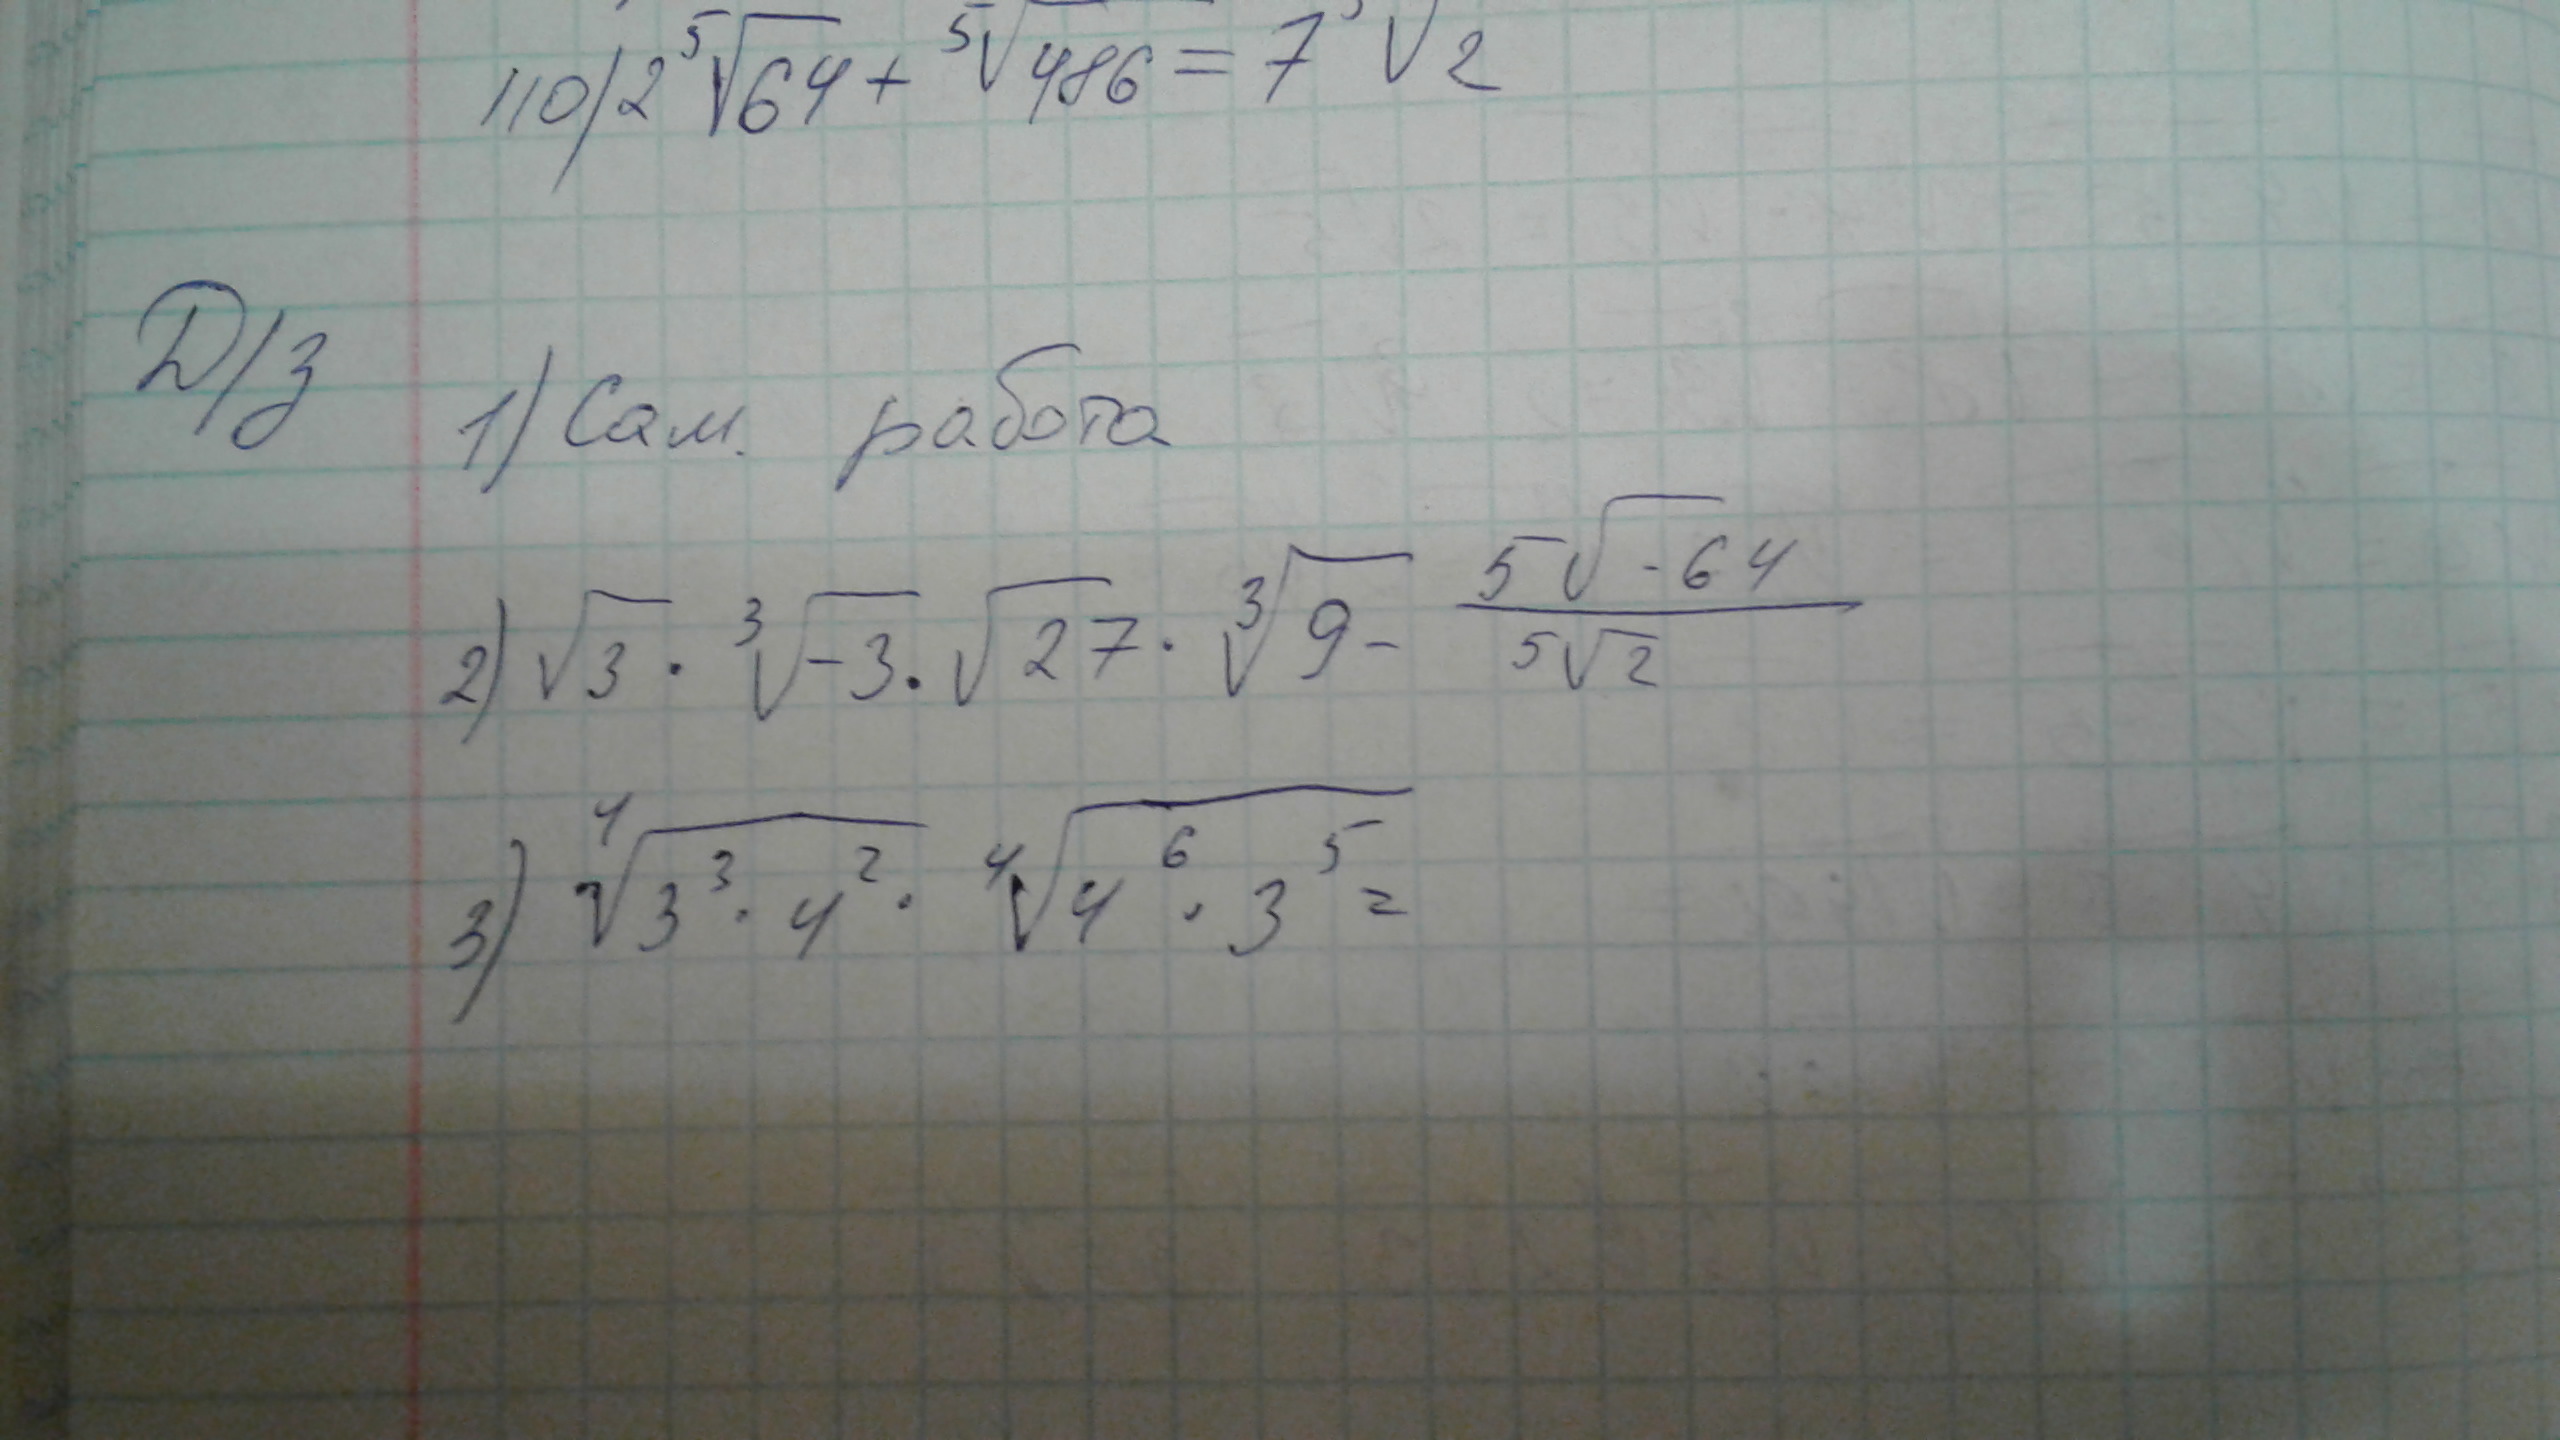 110) 2 ⁵√64 + ⁵√486 = 7 ⁵√2
Д/з 1) Сам. работа
2) √3 · ³√-3 · √27 · ³√9 - ⁵√-64 / ⁵√2
3) ⁴√3³ · 4² · ⁴√4⁶ · 3⁵ =